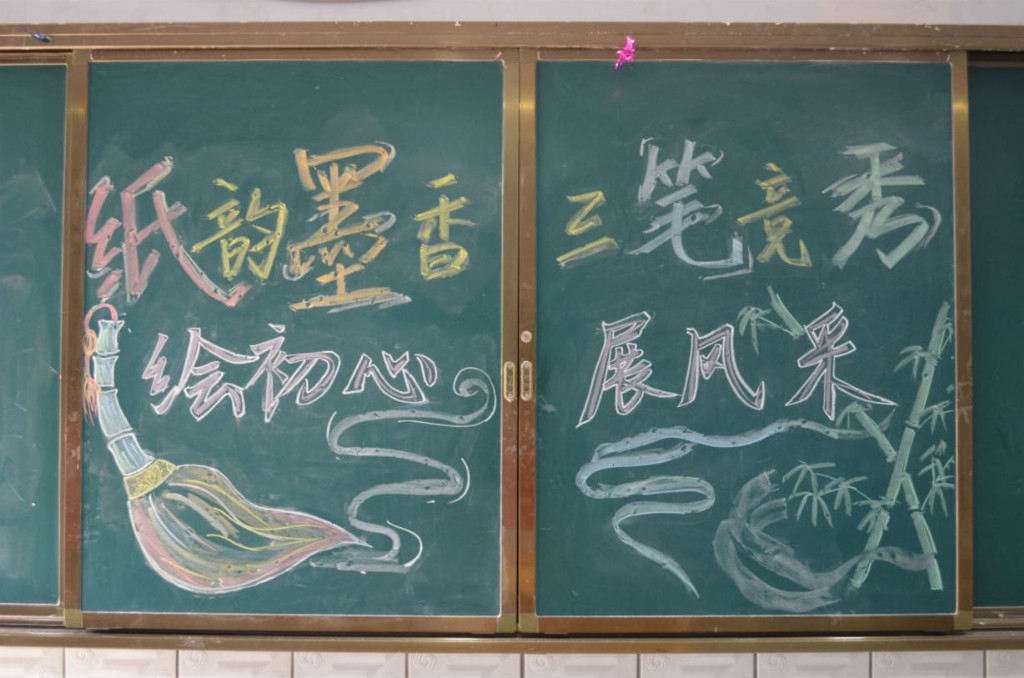 纸韵墨香 三笔竞秀
绘初心 展风采